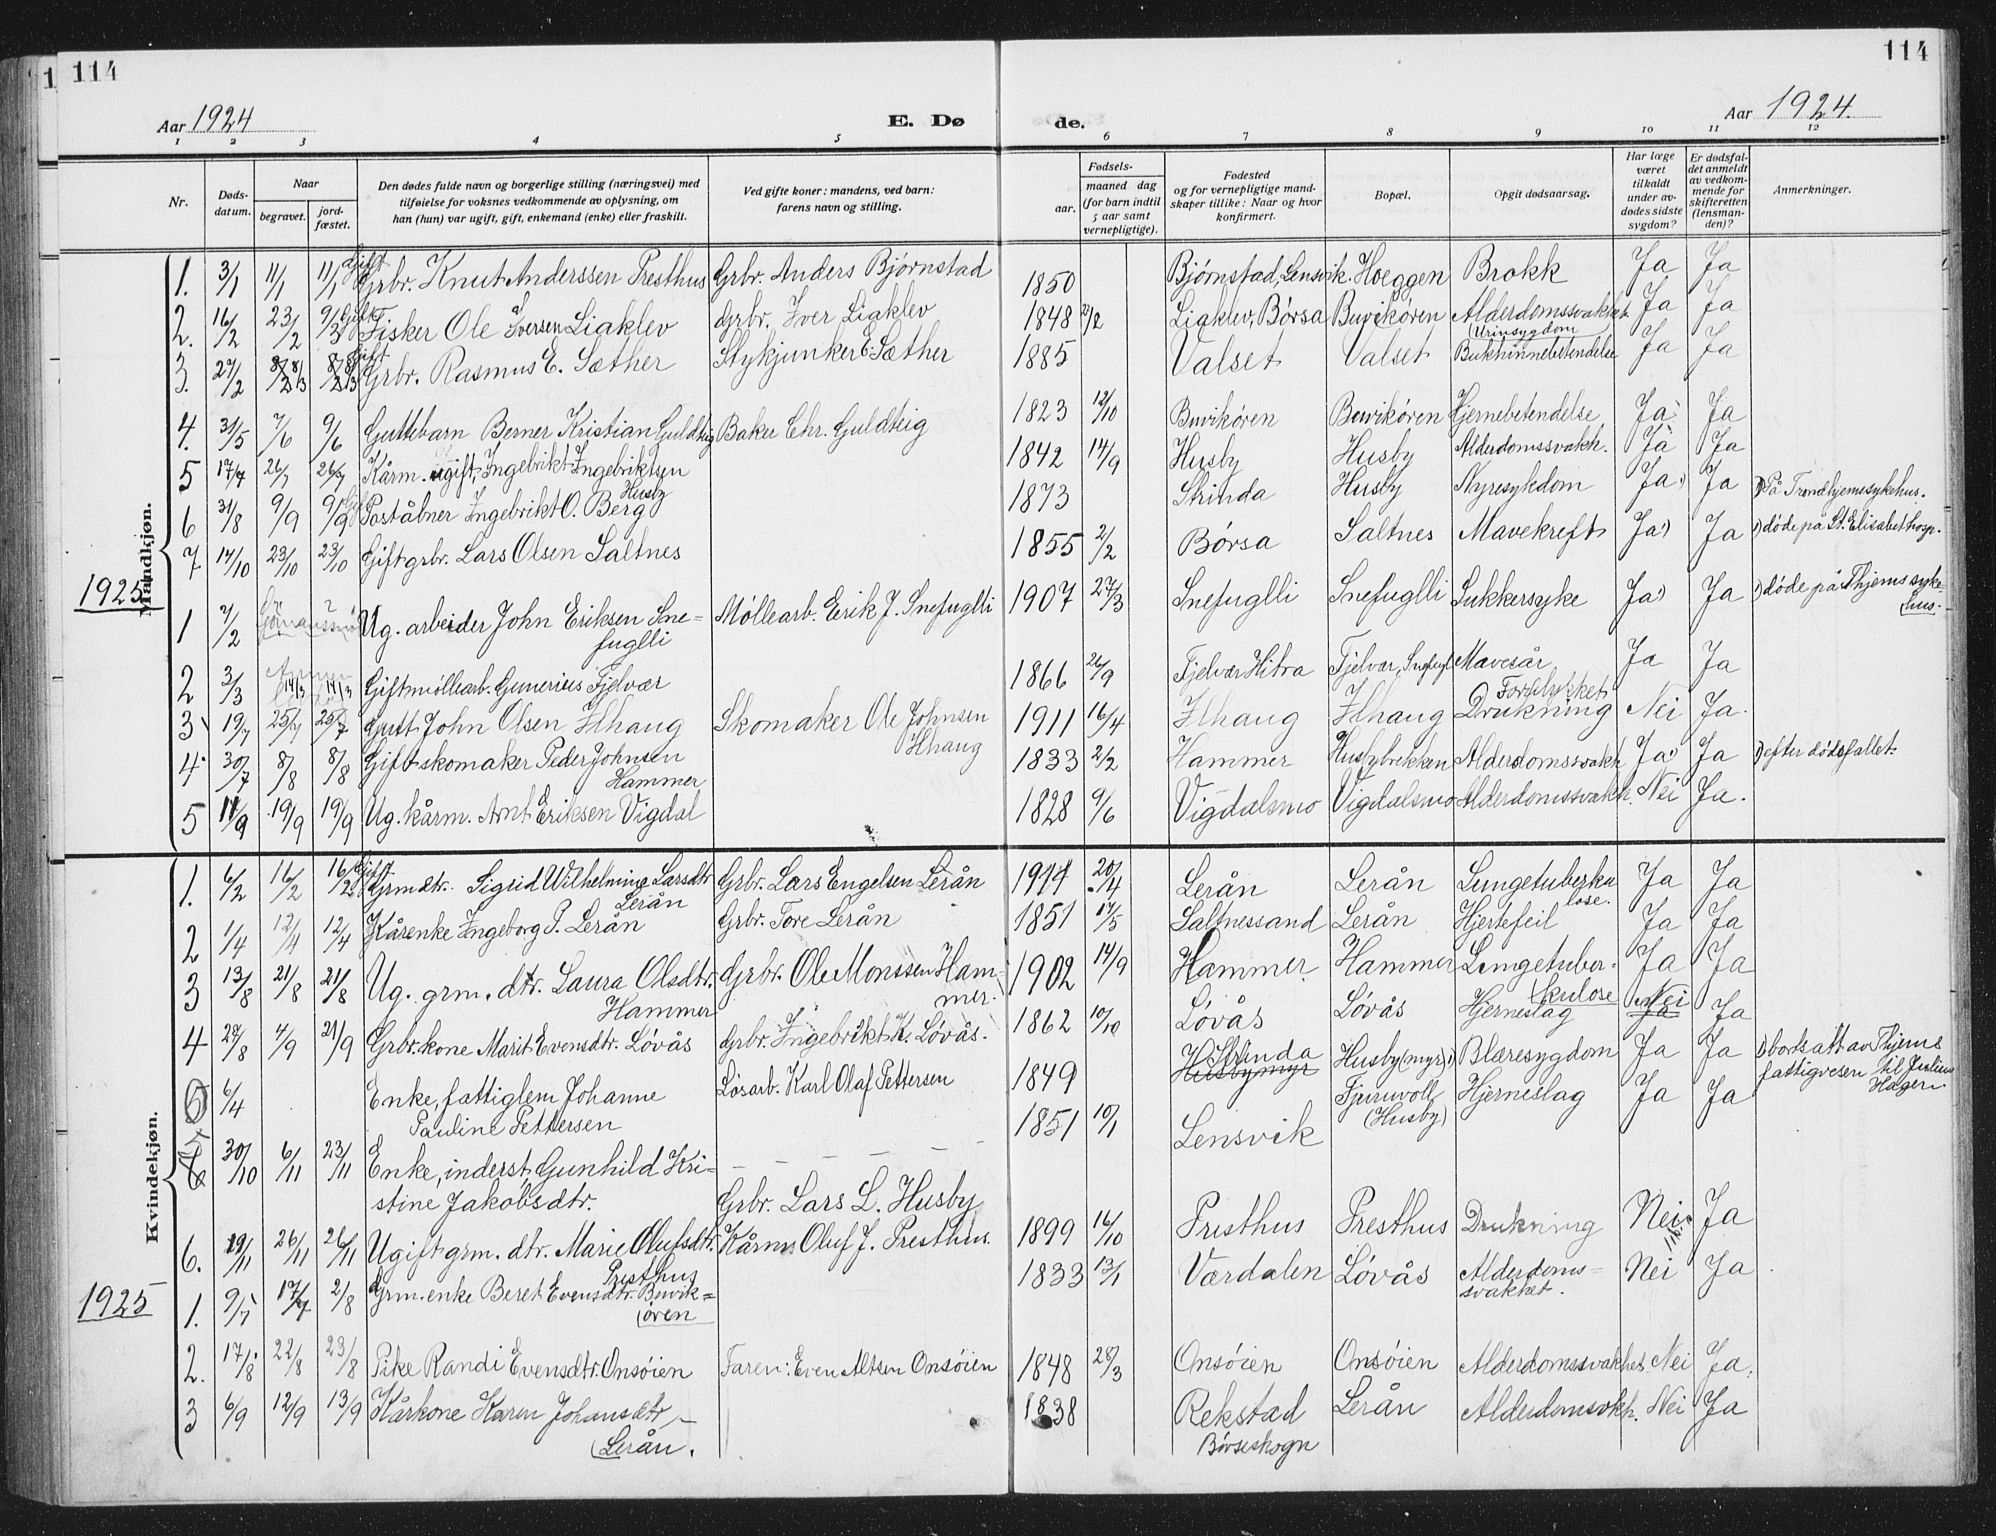 114
114
Aar 1924
E. Dø
de.
Aar 1924.
1 2 3 4 5 6 7 8 9 10 11 12
Nr.
Døds-
datum.
Naar
begravet.
jord-
fæstet.
Den dødes fulde navn og borgerlige stilling (næringsvei) med
tilføielse for voksnes vedkommende av oplysning, om
han (hun) var ugift, gift, enkemand (enke) eller fraskilt.
Ved gifte koner: mandens, ved barn:
farens navn og stilling.
Fødsels-
aar.
maaned dag
(for barn indtil
5 aar samt
vernepligtige).
Fødested
og for vernepligtige mand-
skaper tillike: Naar og hvor
konfirmert.
Bopæl.
Opgit dødsaarsag.
Har læge
været
tilkaldt
under av-
dødes sidste
sygdom?
Er dødsfal-
det anmeldt
av vedkom-
mende for
skifteretten
(lensman-
den)?
Anmerkninger.
Mandkjøn.
1. 3/1 11/1 11/1 Gift Grbr. Knut Anderssen Presthus Grbr. Anders Bjørnstad 1850 Bjørnstad, Lensvik. Hoeggen Brokk Ja Ja
2. 16/2 23/2 9/3 Gift Fisker Ole Iversen Liaklev Grbr. Iver Liaklev 1848 Liaklev, Børsa Buvikøren Alderdomssvakhet Ja Ja
(Urinsygdom
3. 27/2 8/3 8/3 Gift Grbr. Rasmus E. Sæther Stykjunker E. Sæther 1885 Valset Valset Bukhinnebetendelse Ja Ja
4. 31/5 7/6 9/6 Guttebarn Berner Kristian Guldteig Baker Chr. Guldteig 1823 12/10 Buvikøren Buvikøren Hjernebetendelse Ja Ja
5 17/7 26/7 26/7 Kårm. ugift, Ingebrikt Ingebriktsen
Husby 1842 14/9 Husby Husby Alderdomssvakh. Ja Ja
6 31/8 9/9 9/9 Gift Poståbner Ingebrikt O. Berg 1873 Strinda Husby Nyresykdom Ja¹) Ja ¹) På Trondhjems sykehus.
7 14/10 23/10 23/10 Gift grbr. Lars Olsen Saltnes 1855 2/2 Børsa Saltnes Mavekreft Ja¹) Ja ¹) døde på St. Elisabethosp.
1925
1 7/2 Ug. arbeider John Eriksen Sne=
fuglli Møllearb. Erik J. Snefuglli 1907 27/3 Snefuglli Snefuglli Sukkersyke Ja¹) Ja ¹) døde på Thjems syke-
hus.
2 3/3 14/3 14/3 Gift møllearb. Gunerius Fjelvær 1866 26/9 Fjelvær Hitra Fjelvær, Mavesår Ja Ja
3 19/7 25/7 25/7 Gutt John Olsen Ilhaug Skomaker Ole Johnsen
Ilhaug 1911 16/4 Ilhaug Ilhaug Drukning Nei Ja.
4. 30/7 8/8 8/8 Gift skomaker Peder Johnsen
Hammer 1833 2/2 Hammer Husbybrekken Alderdomssvakh Ja¹) Ja ¹) efter dødsfallet.
5 11/9 19/9 19/9 Ug. kårm. Arnt Eriksen Vigdal 1828 9/6 Vigdalsmo Vigdalsmo Alderdomssvakh. Nei Ja.
Kvindekjøn.
1. 6/2 16/2 16/2 Gift Grm dtr. Sigrid Wilhelmine Larsdtr
Lerån Grbr. Lars Engelsen Lerån 20/4 Lerån Lerån Lungetuberku
lose. Ja Ja
2 1/4 12/4 12/4 Kårenke Ingeborg P. Lerån Grbr. Tore Lerån 1851 17/5 Saltnessand Lerån Hjertefeil Ja Ja
3 13/8 21/8 21/8 Ug. grm. dtr. Laura Olsdtr.
Hammer Grbr. Ole Monssen Ham-
mer. 1902 14/9 Hammer Hammer Lungetuber-
kulose Ja Ja
4 28/8 4/9 21/9 Grbr. kone Marit Evensdtr. Løvås Grbr. Ingebrikt K. Løvås. 1862 10/10 Løvås Løvås Hjerneslag Nei Ja
5 6/4 Enke, fattiglem Johanne
Pauline Pettersen Løsarb. Karl Olaf Pettersen 1849 Strinda
Husbymyr Husby (myr) ¹) Blæresygdom Ja Ja ¹) bortsatt av Thjems
fattigvesen til Julius
Hagen.
5 30/10 6/11 23/11 Enke, inderst, Gunhild Kri-
stine Jakobsdtr. — — — — — 1851 10/1 Lensvik Fjeruvoll
(Husby) Hjerneslag Ja Ja
Grbr. Lars L. Husby
6. 19/11 26/11 26/11 Ugift grm. dtr. Marie Olufsdtr.
Presthus Kårm. Oluf J. Presthus. 1899 16/10 Presthus Presthus Drukning Nei Ja
1925
1. 9/7 17/7 2/8 Grm. enke Beret Evensdtr. Buvik=
øren 1833 13/1 Værdalen Løvås Alderdoms=
svakhet. Nei Ja
2. 17/8 22/8 23/8 Pike Randi Evensdtr. Onsøien Faren: Even Altsen Onsøien 1848 28/3 Onsøien Onsøien Alderdomssvakhet Nei Ja.
3 6/9 12/9 13/9 Kårkone Karen Johansdtr
Lerån. 1838 Rekstad
Børseskogn Lerån Alderdomsvkh. Nei Ja